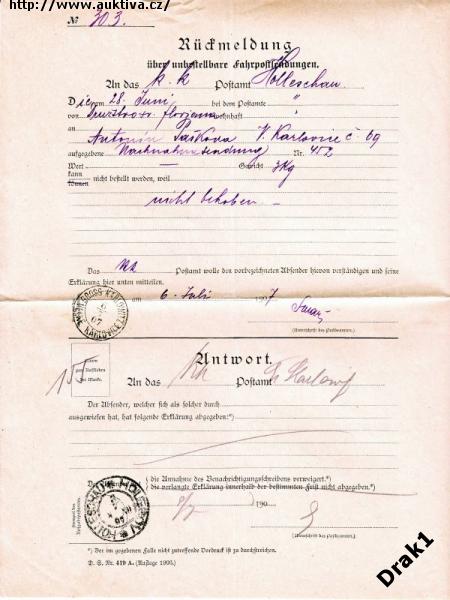 https://www.auktiva.cz
№ 303.
Rückmeldung
über unbestellbare Fahrpostsendungen.
An das k.k. Postamt Holleschau
Die vom 28. Juni bei dem Postamte "
von wohnhaft "
an Antonín V. Karlovic č. 69
aufgegebene Nachnahmesendung Nr. 452
Wert — Gewicht 3 Kg
kann
können nicht bestellt werden, weil
nicht behoben —
Das Postamt wolle den vorbezeichneten Absender hievon verständigen und seine
Erklärung hier unten mitteilen.
am 6. Juli 1907
(Unterschrift des Postbeamten.)
Antwort.
zum Aufkleben
der Marke.
An das kk Postamt Gr Karlowitz
Der Absender, welcher sich als solcher durch
ausgewiesen hat, hat folgende Erklärung abgegeben:*)
(die Annahme des Benachrichtigungsschreibens verweigert.*)
(die verlangte Erklärung innerhalb der bestimmten Frist nicht abgegeben.*)
190
HOLLESCHAU HOLEŠOV
(Unterschrift des Postbeamten.)
*) Der im gegebenen Falle nicht zutreffende Vordruck ist zu durchstreichen.
D. S. Nr. 419 A. (Auflage 1905.)
Drak1